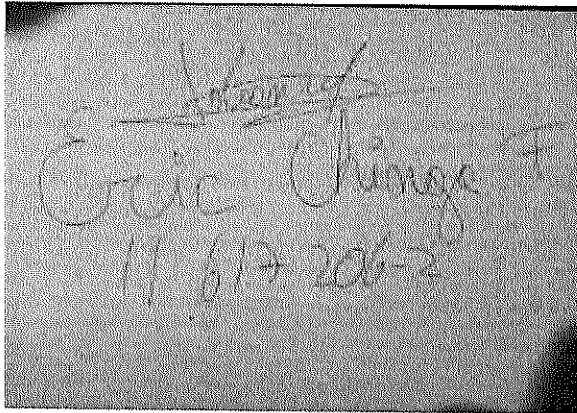 Eric Chinga F
11 617 206-2